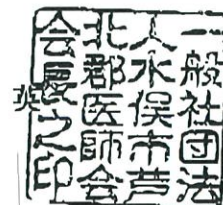 一般社団法
人水俣市芦
北郡医師会
会長之印